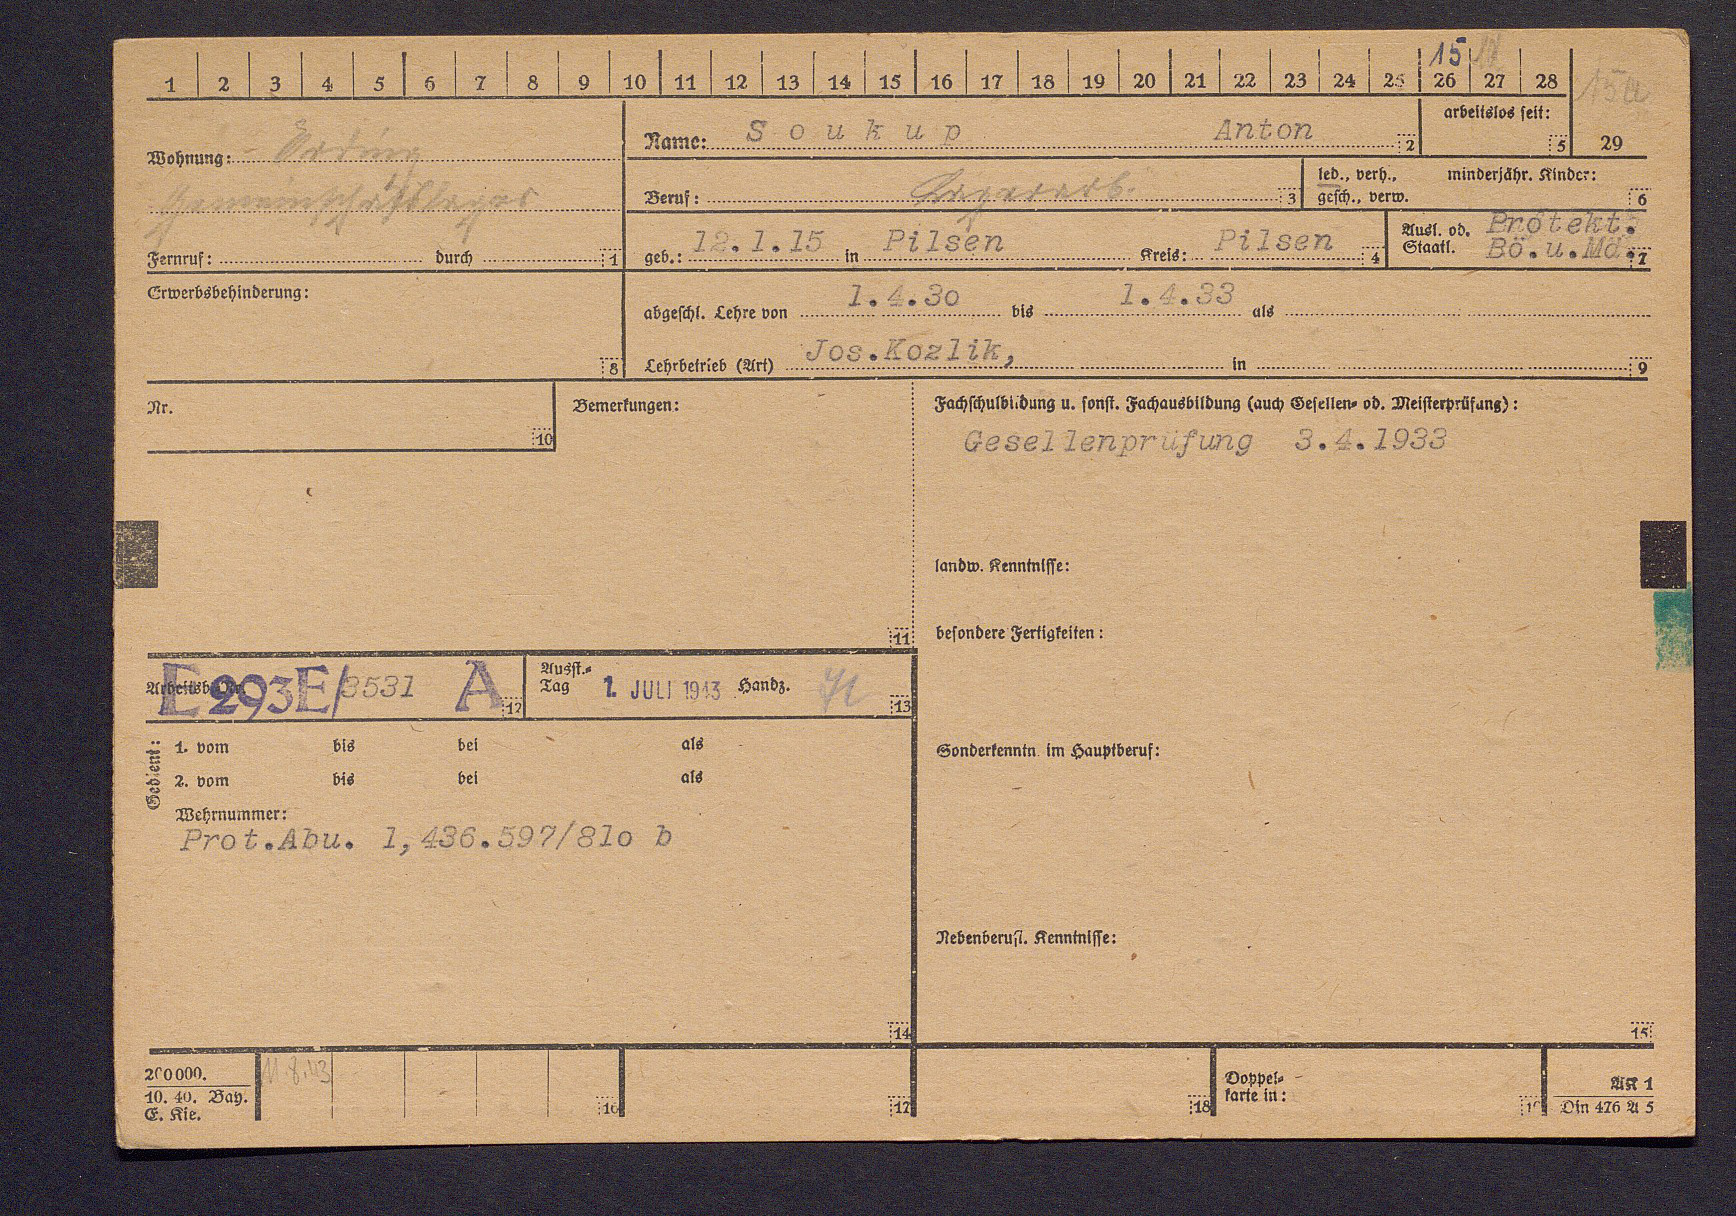 15
1 2 3 4 5 6 7 8 9 10 11 12 13 14 15 16 17 18 19 20 21 22 23 24 25 26 27 28
15a
29
Wohnung: Erding
Gemeinschaftslager
Fernruf: durch 1
Name: Soukup Anton 2
arbeitslos seit: 5
Beruf: Lagerarb. 3
led., verh., gesch., verw.
minderjähr. Kinder: 6
geb.: 12.1.15 in Pilsen Kreis: Pilsen 4
Ausl. od. Staatl. Protekt. Bö.u.Mä. 7
Erwerbsbehinderung: 8
abgeschl. Lehre von 1.4.30 bis 1.4.33 als
Lehrbetrieb (Art) Jos.Kozlik, in 9
Nr. 10
Bemerkungen: 11
Fachschulbildung u. sonst. Fachausbildung (auch Gesellen- od. Meisterprüfung):
Gesellenprüfung 3.4.1933
landw. Kenntnisse:
besondere Fertigkeiten:
Sonderkenntn. im Hauptberuf:
Nebenberufl. Kenntnisse:
15
Arbeitsb. Nr. E 293E/3531 A 12
Ausst.-Tag 1. JULI 1943 Handz. 13
Gedient:
1. vom bis bei als
2. vom bis bei als
Wehrnummer:
Prot.Abu. 1,436.597/81o b
14
200000.
10. 40. Bay.
E. Kie.
11.8.43
16 17 18
Doppelkarte in: 19
AK 1
Din 476 A 5